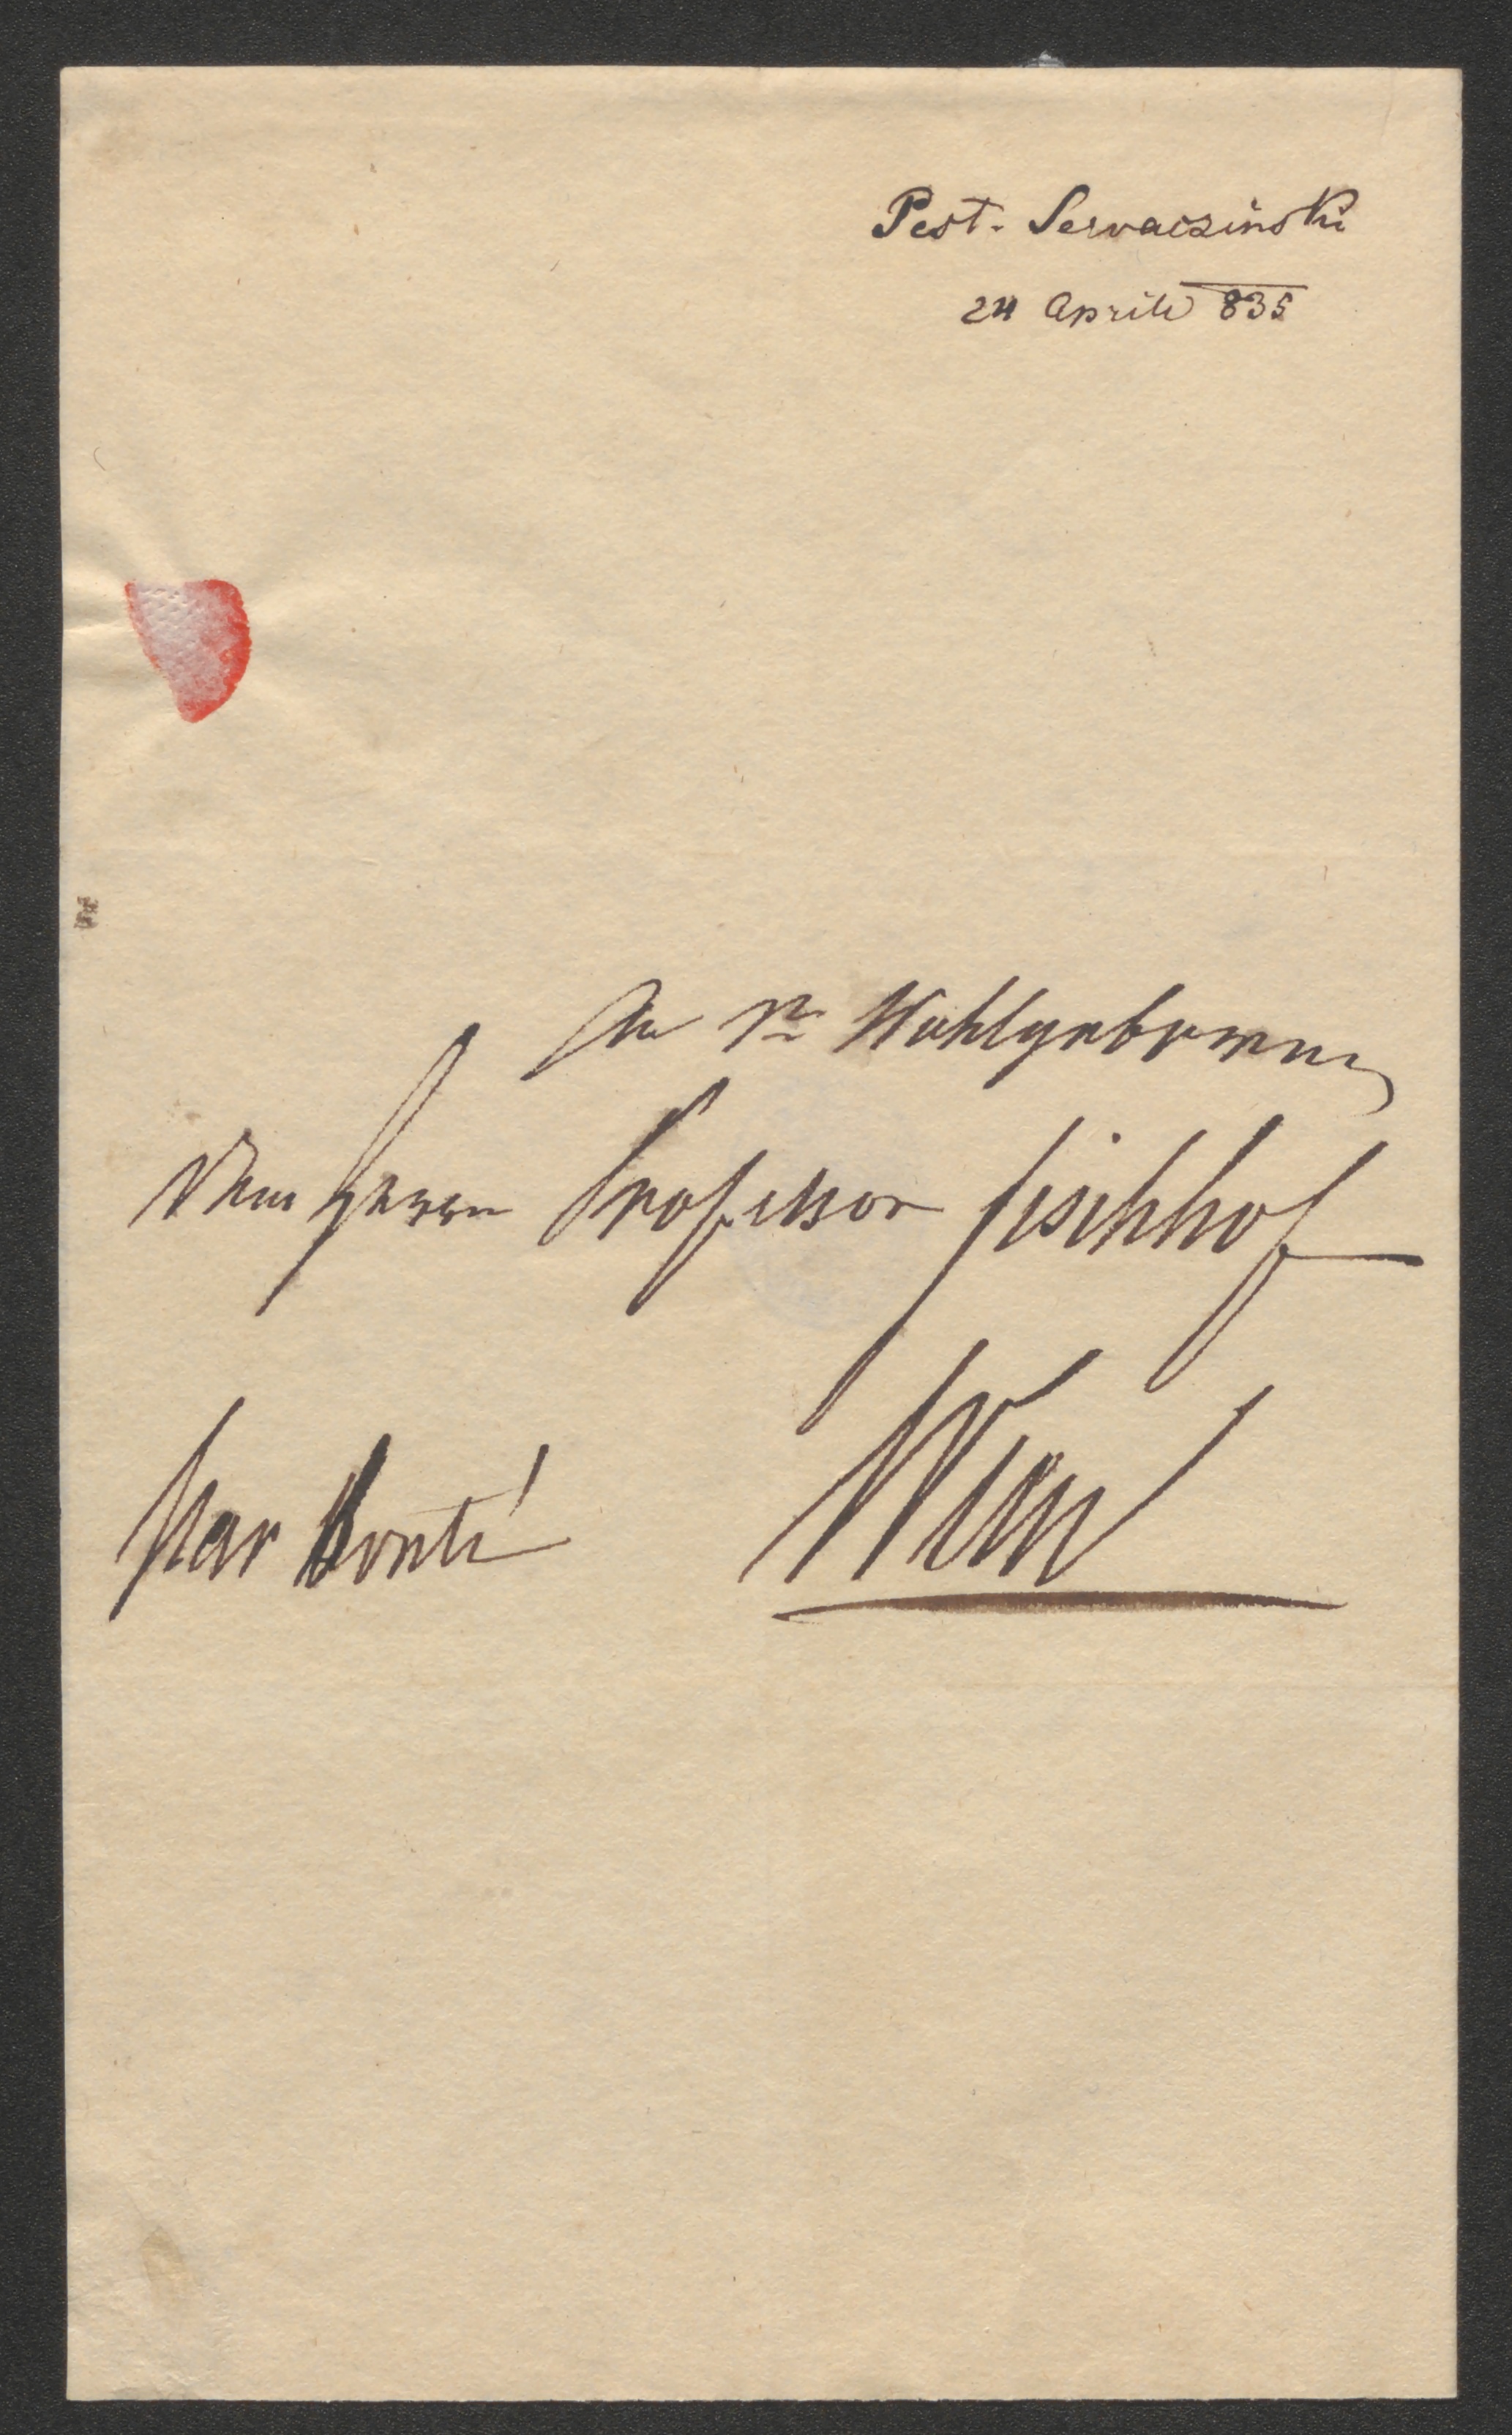 Pest. Servaczinski
24 Aprile 835
An Sr Wohlgeboren
dem Herrn Professor Fischhof
Par bonté
Wien